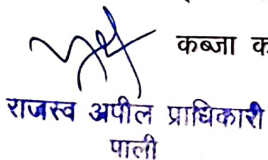 कब्जा क
राजस्व अपील प्राधिकारी
पाली